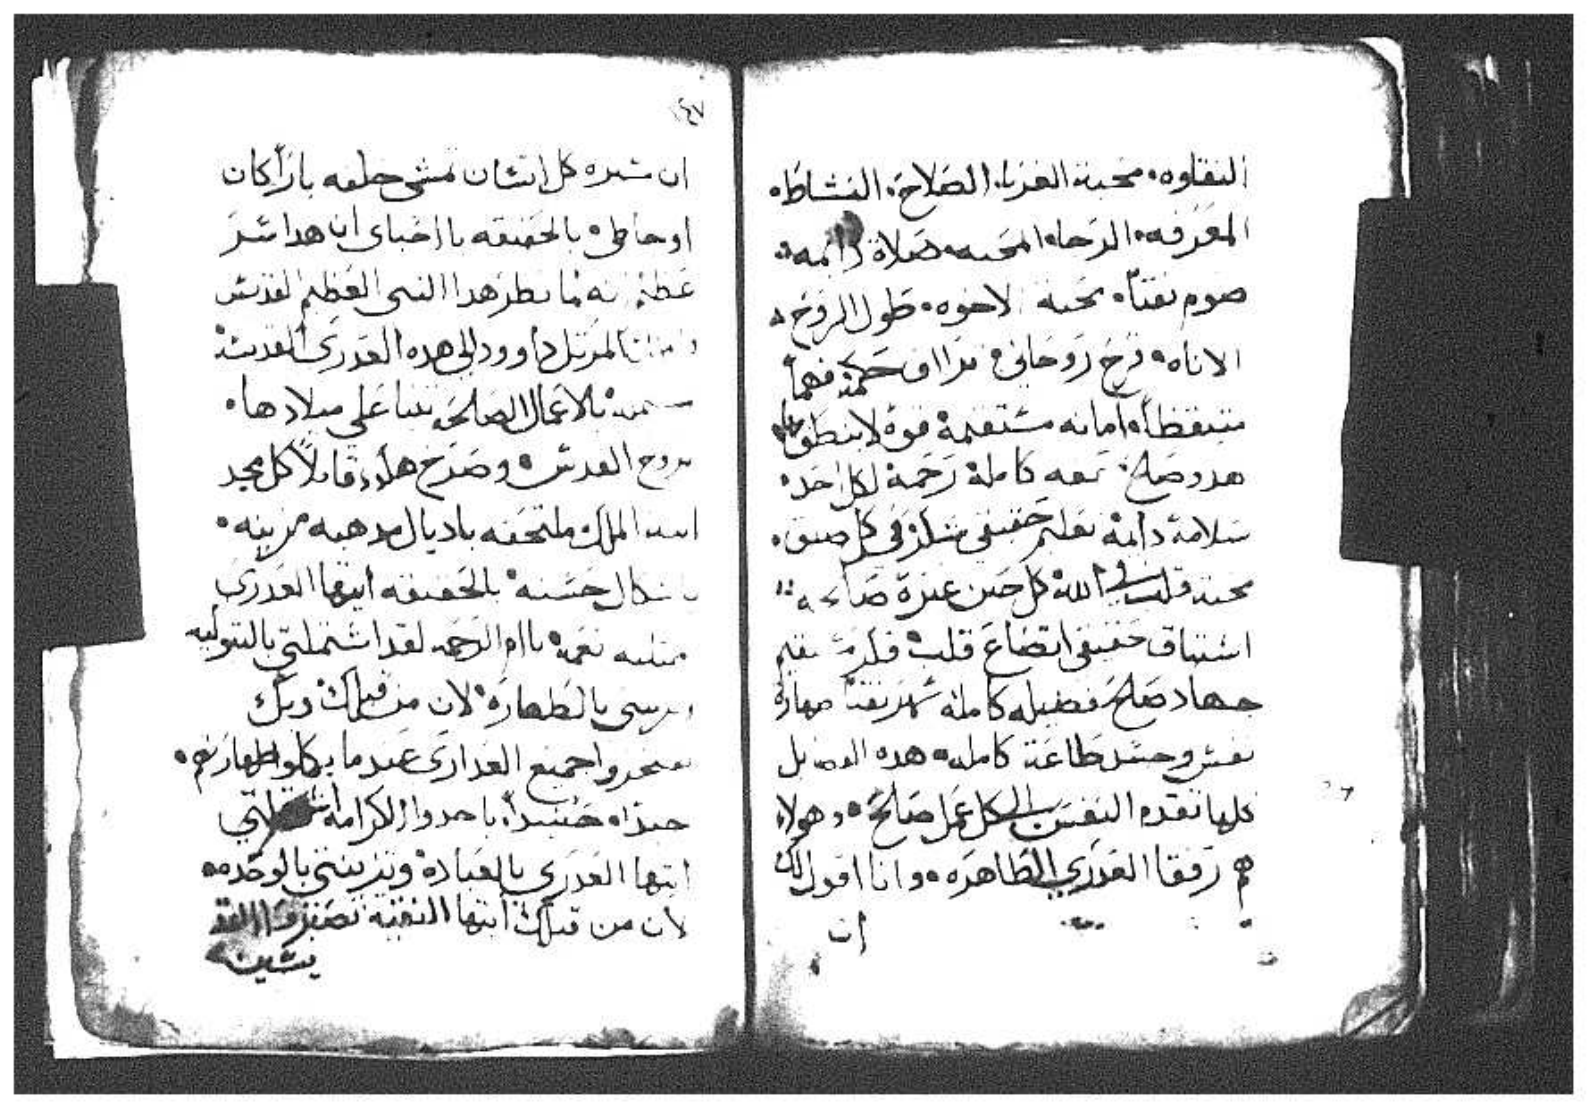 النقاوه. محبة الغربا. الصلاح. النشاط.
المعرفه. الرجا. المحبه. صلاة دايمه.
صوم نقيا. محبه لاخوه. طول الروح.
الاناه. فرح روحانى. حكمة فهما
متيقظا. امانه مستقيمة قوة لا ينطق
هدو صالح. كاملة رحمة لكل احد.
سلامة دايمة حقيقى فى كل ضيق.
محبة قلب فى الله كل حين غيرة صالحه
اشتياق حقيقى اتضاع قلب فكر مستقيم
جهاد صالح فضيله كاملة سهر نقيا طهارة
نفس وجسد طاعة كامله. هده الفضايل
كلها تقده النفس الى كل عمل صالح. وهولا
هم رفقا العدرى الطاهره. وانا اقول لك
ان
١٤٧
ان سيره كل انسان تمشى خلفه بارا كان
او خاطى. بالحقيقه يا احباى ان هدا سر
عظيم نظر هدا النبى العظيم القديس
المرتل داوود الى هده العدرى القديسة
بالاعمال الصالحه تنبا على ميلادها.
بروح القدس. وصرخ هكدا قايلا كل مجد
ابنة الملك ملتحفه باديال مدهبه مزينه.
باشكال حسنة بالحقيقه ايتها العدرى
ممتليه نعمة يا ام الرحمه لقد اشتملتى بالبتوليه
بالطهارة لان من قبلك وبك
يفتخروا جميع العدارى عندما يكملوا طهارتهم.
حسدا. الكرامه اشتملتي
ايتها العدرى بالعبادة وتزينتى بالوحده
لان من قبلك ايتها النقية تصيروا القد
يسين